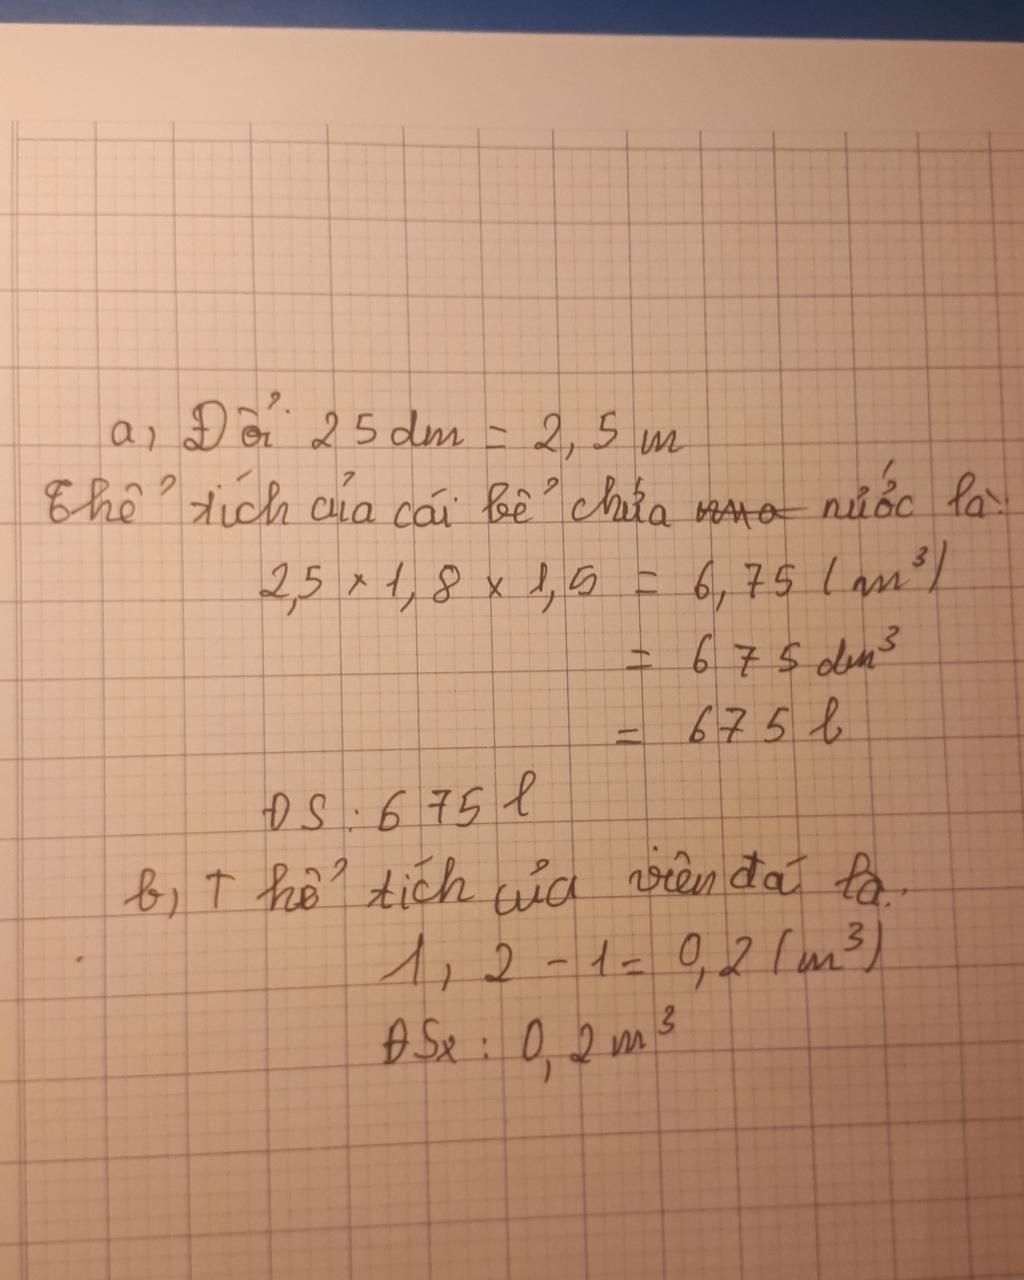 a, Đổi 25 dm = 2,5 m
Thể tích của cái bể chứa nước là:
2,5 × 1,8 × 1,5 = 6,75 (m³)
= 675 dm³
= 675 l
ĐS : 675 l
b, Thể tích của viên đá là.
1,2 - 1 = 0,2 (m³)
ĐSx : 0,2 m³